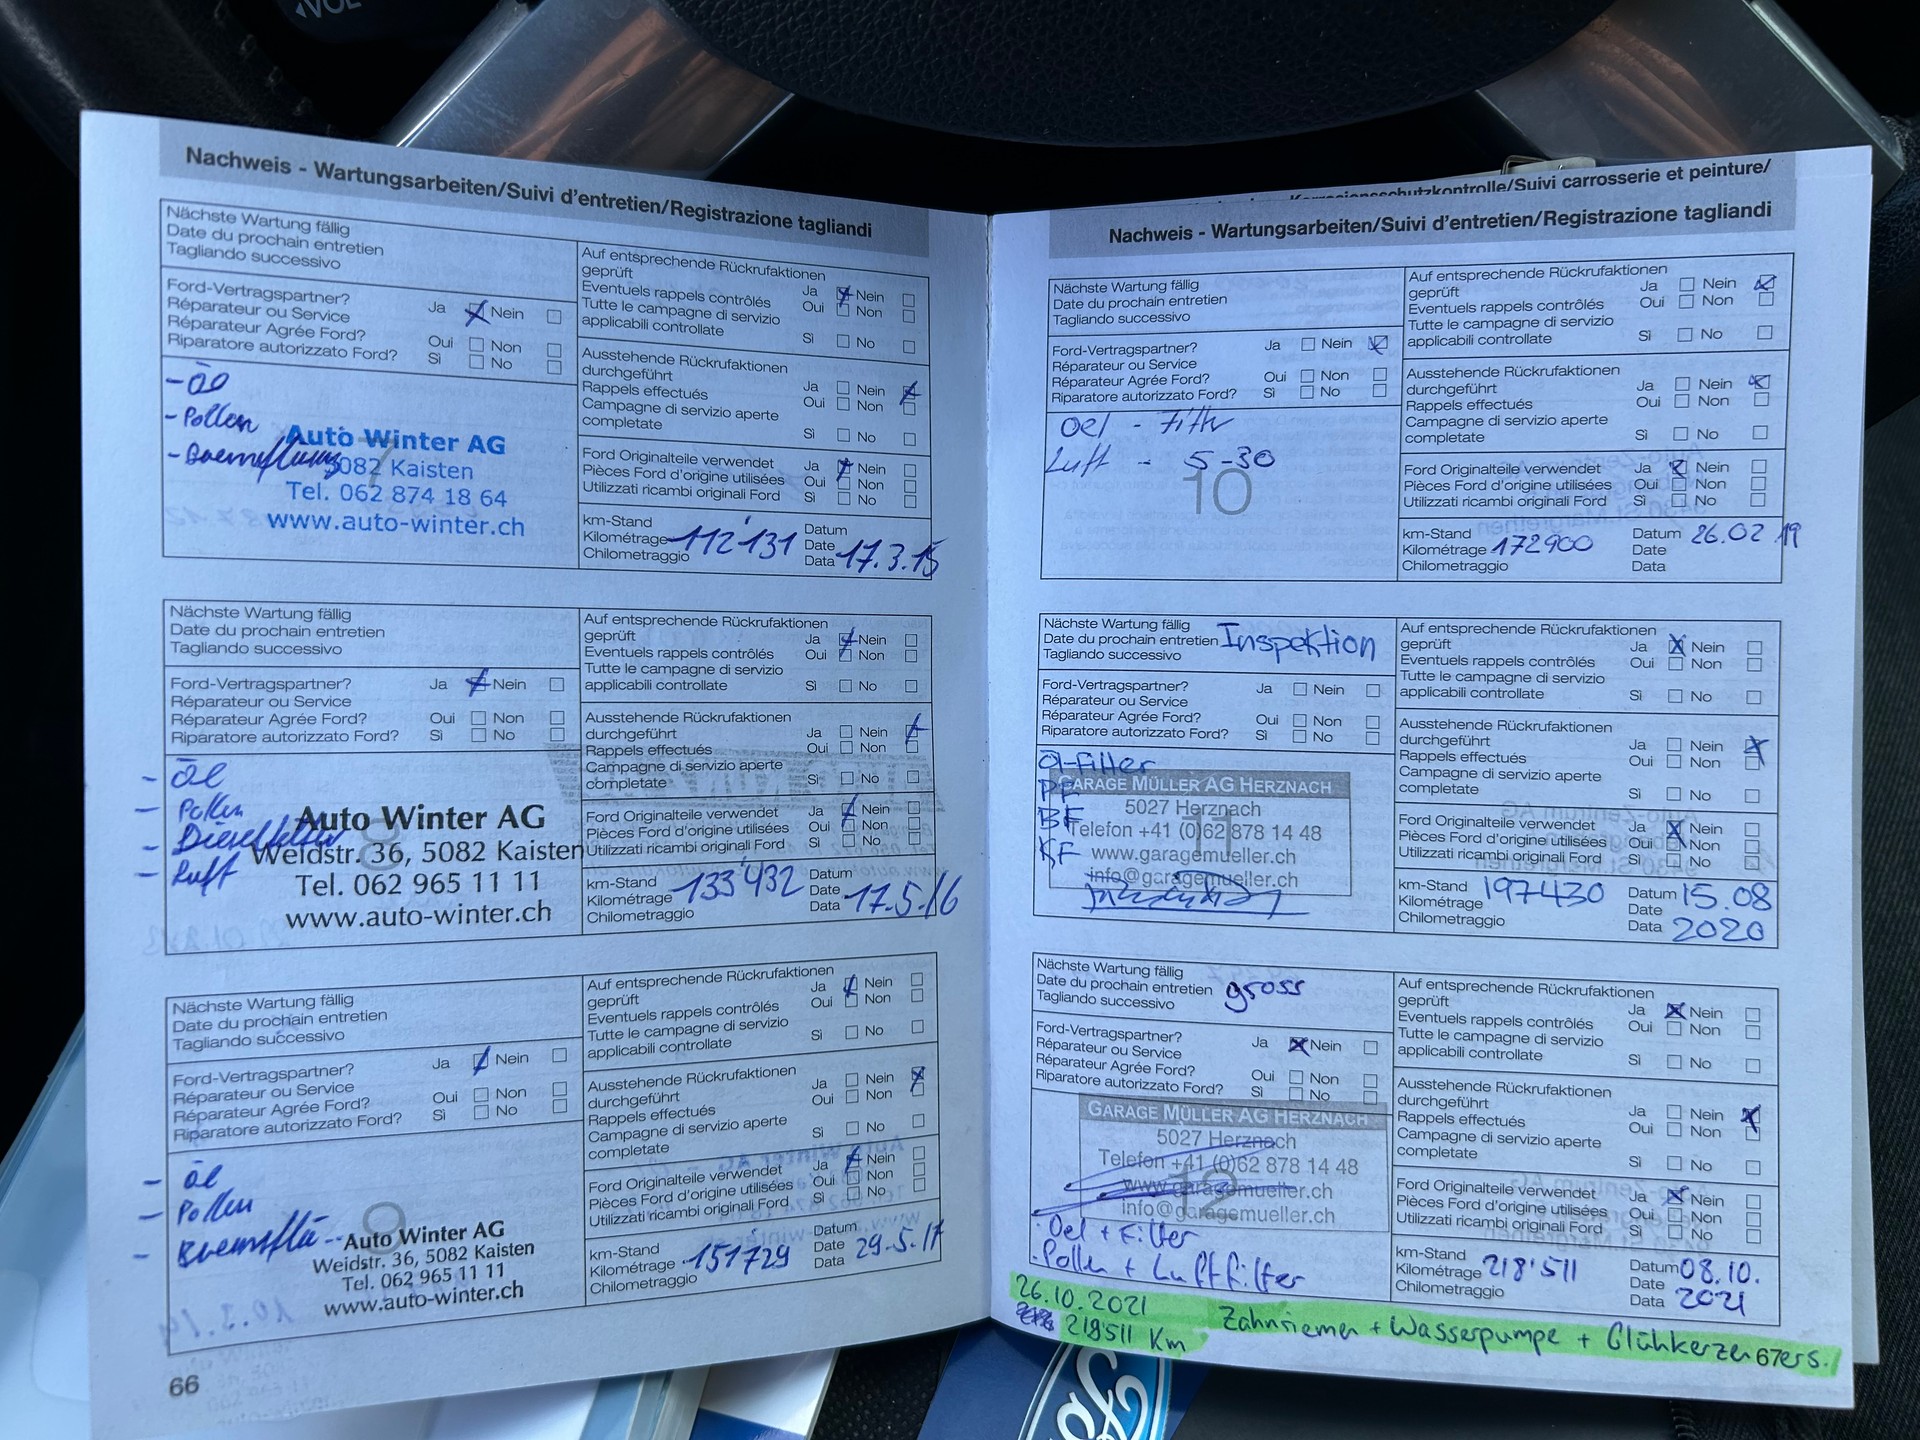 VOL
Nachweis - Wartungsarbeiten/Suivi d'entretien/Registrazione tagliandi
Nächste Wartung fällig
Date du prochain entretien
Tagliando successivo
Ford-Vertragspartner?
Réparateur ou Service
Réparateur Agrée Ford?
Riparatore autorizzato Ford?
Ja Nein
Oui Non
Sì No
- Öl
- Pollen
- Bremsflüss
7
Auto Winter AG
5082 Kaisten
Tel. 062 874 18 64
www.auto-winter.ch
Auf entsprechende Rückrufaktionen
geprüft
Eventuels rappels contrôlés
Tutte le campagne di servizio
applicabili controllate
Ja Nein
Oui Non
Sì No
Ausstehende Rückrufaktionen
durchgeführt
Rappels effectués
Campagne di servizio aperte
completate
Ja Nein
Oui Non
Sì No
Ford Originalteile verwendet
Pièces Ford d'origine utilisées
Utilizzati ricambi originali Ford
Ja Nein
Oui Non
Sì No
km-Stand
Kilométrage 112'131
Chilometraggio
Datum
Date
Data 17.3.15
Nächste Wartung fällig
Date du prochain entretien
Tagliando successivo
Ford-Vertragspartner?
Réparateur ou Service
Réparateur Agrée Ford?
Riparatore autorizzato Ford?
Ja Nein
Oui Non
Sì No
- Öl
- Pollen
- Dieselfilter
- Luft
8
Auto Winter AG
Weidstr. 36, 5082 Kaisten
Tel. 062 965 11 11
www.auto-winter.ch
Auf entsprechende Rückrufaktionen
geprüft
Eventuels rappels contrôlés
Tutte le campagne di servizio
applicabili controllate
Ja Nein
Oui Non
Sì No
Ausstehende Rückrufaktionen
durchgeführt
Rappels effectués
Campagne di servizio aperte
completate
Ja Nein
Oui Non
Sì No
Ford Originalteile verwendet
Pièces Ford d'origine utilisées
Utilizzati ricambi originali Ford
Ja Nein
Oui Non
Sì No
km-Stand
Kilométrage 133'432
Chilometraggio
Datum
Date
Data 17.5.16
Nächste Wartung fällig
Date du prochain entretien
Tagliando successivo
Ford-Vertragspartner?
Réparateur ou Service
Réparateur Agrée Ford?
Riparatore autorizzato Ford?
Ja Nein
Oui Non
Sì No
- Öl
- Pollen
- Bremsflü--
9
Auto Winter AG
Weidstr. 36, 5082 Kaisten
Tel. 062 965 11 11
www.auto-winter.ch
Auf entsprechende Rückrufaktionen
geprüft
Eventuels rappels contrôlés
Tutte le campagne di servizio
applicabili controllate
Ja Nein
Oui Non
Sì No
Ausstehende Rückrufaktionen
durchgeführt
Rappels effectués
Campagne di servizio aperte
completate
Ja Nein
Oui Non
Sì No
Ford Originalteile verwendet
Pièces Ford d'origine utilisées
Utilizzati ricambi originali Ford
Ja Nein
Oui Non
Sì No
km-Stand
Kilométrage 151729
Chilometraggio
Datum
Date 29.5.17
Data
66
Korrosionsschutzkontrolle/Suivi carrosserie et peinture/
Nachweis - Wartungsarbeiten/Suivi d'entretien/Registrazione tagliandi
Nächste Wartung fällig
Date du prochain entretien
Tagliando successivo
Ford-Vertragspartner?
Réparateur ou Service
Réparateur Agrée Ford?
Riparatore autorizzato Ford?
Ja Nein
Oui Non
Sì No
Oel - Filtr
Luft - 5-30
10
Auf entsprechende Rückrufaktionen
geprüft
Eventuels rappels contrôlés
Tutte le campagne di servizio
applicabili controllate
Ja Nein
Oui Non
Sì No
Ausstehende Rückrufaktionen
durchgeführt
Rappels effectués
Campagne di servizio aperte
completate
Ja Nein
Oui Non
Sì No
Ford Originalteile verwendet
Pièces Ford d'origine utilisées
Utilizzati ricambi originali Ford
Ja Nein
Oui Non
Sì No
km-Stand
Kilométrage 172900
Chilometraggio
Datum 26.02 19
Date
Data
Nächste Wartung fällig
Date du prochain entretien Inspektion
Tagliando successivo
Ford-Vertragspartner?
Réparateur ou Service
Réparateur Agrée Ford?
Riparatore autorizzato Ford?
Ja Nein
Oui Non
Sì No
Öl-Filter
PF
BF
KF
11
GARAGE MÜLLER AG HERZNACH
5027 Herznach
Telefon +41 (0)62 878 14 48
www.garagemueller.ch
info@garagemueller.ch
Auf entsprechende Rückrufaktionen
geprüft
Eventuels rappels contrôlés
Tutte le campagne di servizio
applicabili controllate
Ja Nein
Oui Non
Sì No
Ausstehende Rückrufaktionen
durchgeführt
Rappels effectués
Campagne di servizio aperte
completate
Ja Nein
Oui Non
Sì No
Ford Originalteile verwendet
Pièces Ford d'origine utilisées
Utilizzati ricambi originali Ford
Ja Nein
Oui Non
Sì No
km-Stand
Kilométrage 197430
Chilometraggio
Datum 15.08
Date
Data 2020
Nächste Wartung fällig
Date du prochain entretien gross
Tagliando successivo
Ford-Vertragspartner?
Réparateur ou Service
Réparateur Agrée Ford?
Riparatore autorizzato Ford?
Ja Nein
Oui Non
Sì No
12
GARAGE MÜLLER AG HERZNACH
5027 Herznach
Telefon +41 (0)62 878 14 48
www.garagemueller.ch
info@garagemueller.ch
· Oel + Filter
· Pollen + Luftfilter
Auf entsprechende Rückrufaktionen
geprüft
Eventuels rappels contrôlés
Tutte le campagne di servizio
applicabili controllate
Ja Nein
Oui Non
Sì No
Ausstehende Rückrufaktionen
durchgeführt
Rappels effectués
Campagne di servizio aperte
completate
Ja Nein
Oui Non
Sì No
Ford Originalteile verwendet
Pièces Ford d'origine utilisées
Utilizzati ricambi originali Ford
Ja Nein
Oui Non
Sì No
km-Stand
Kilométrage 218'511
Chilometraggio
Datum 08.10.
Date
Data 2021
26.10.2021 Zahnriemen + Wasserpumpe + Glühkerzen ers.
219511 Km
67